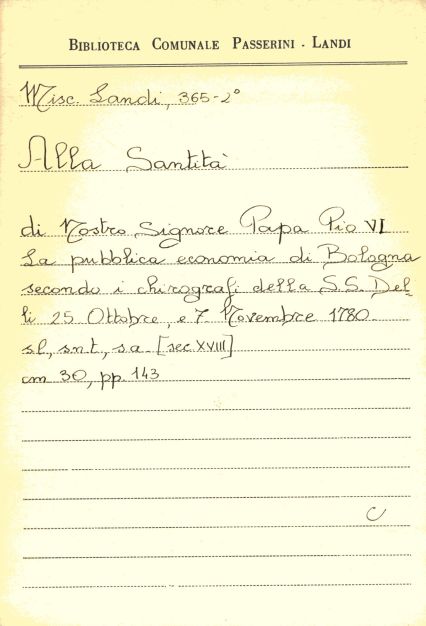 BIBLIOTECA COMUNALE PASSERINI - LANDI
Misc. Landi, 365-2°
Alla Santità
di Nostro Signore Papa Pio VI
La pubblica economia di Bologna
secondo i chirografi della S.S. Del-
li 25 Ottobre, e 7 Novembre 1780
sl, snt, sa [sec XVIII]
cm 30, pp. 143
C